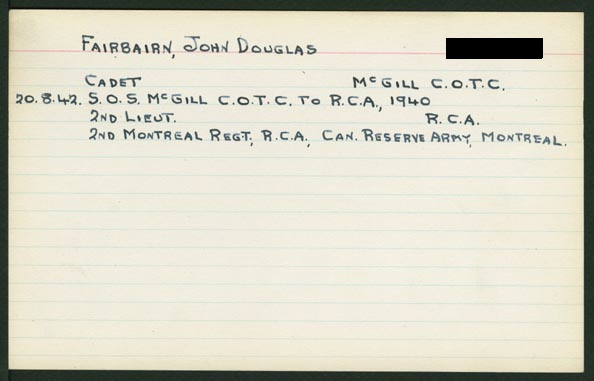 FAIRBAIRN, JOHN DOUGLAS
CADET McGILL C.O.T.C.
20.8.42. S.O.S. McGILL C.O.T.C. TO R.C.A., 1940
2ND LIEUT. R.C.A.
2ND MONTREAL REGT., R.C.A., CAN. RESERVE ARMY, MONTREAL.